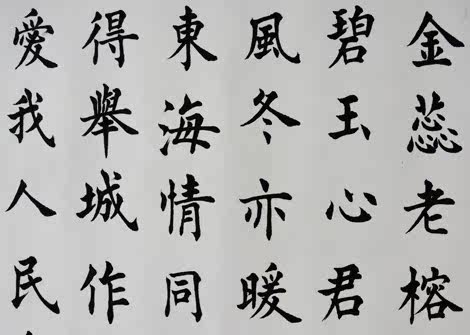 金蕊老榕
碧玉心君
風冬亦暖
東海情同
得舉城作
愛我人民